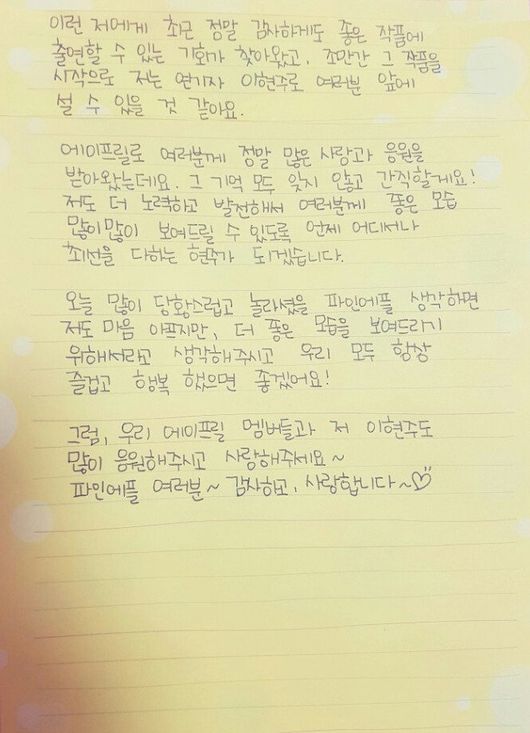 이런 저에게 최근 정말 감사하게도 좋은 작품에
출연할 수 있는 기회가 찾아왔고, 조만간 그 작품을
시작으로 저는 연기자 이현주로 여러분 앞에
설 수 있을 것 같아요.
에이프릴로 여러분께 정말 많은 사랑과 응원을
받아왔는데요. 그 기억 모두 잊지 않고 간직할게요!
저도 더 노력하고 발전해서 여러분께 좋은 모습
많이많이 보여드릴 수 있도록 언제 어디서나
최선을 다하는 현주가 되겠습니다.
오늘 많이 당황스럽고 놀라셨을 파인에플 생각하면
저도 마음 아프지만, 더 좋은 모습을 보여드리기
위해서라고 생각해주시고 우리 모두 항상
즐겁고 행복 했으면 좋겠어요!
그럼, 우리 에이프릴 멤버들과 저 이현주도
많이 응원해주시고 사랑해주세요~
파인에플 여러분~ 감사하고, 사랑합니다~♡